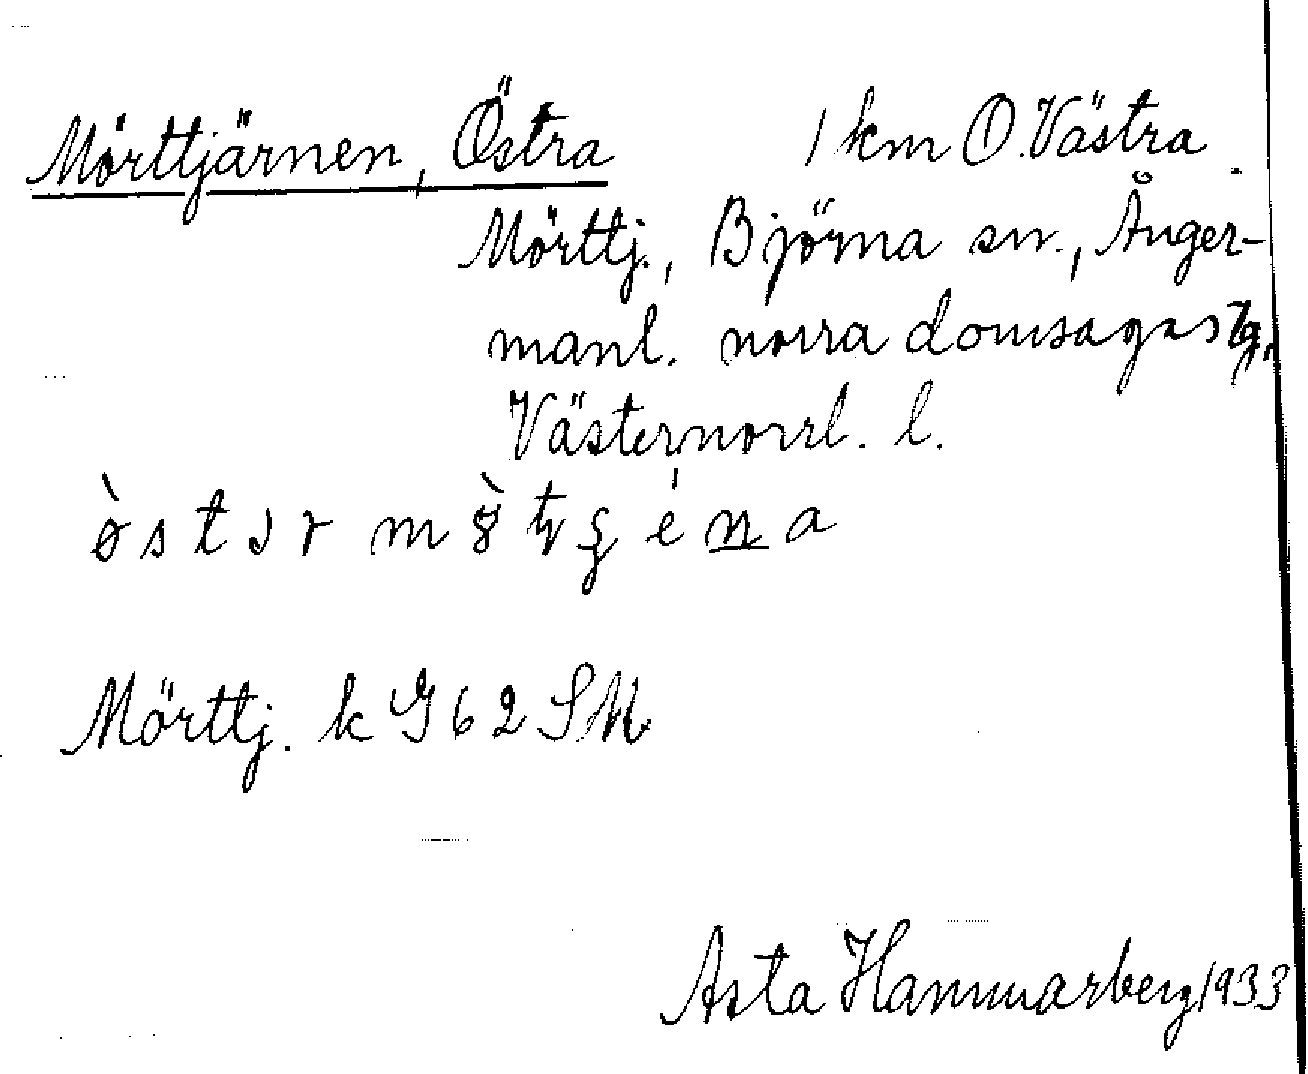 Mörttjärnen, Östra 1 km O. Västra
Mörttj., Björna sn., Ånger-
manl. norra domsagas tg.
Västernorrl. l.
Mörttj. k G 62 SM
Asta Hammarberg 1933